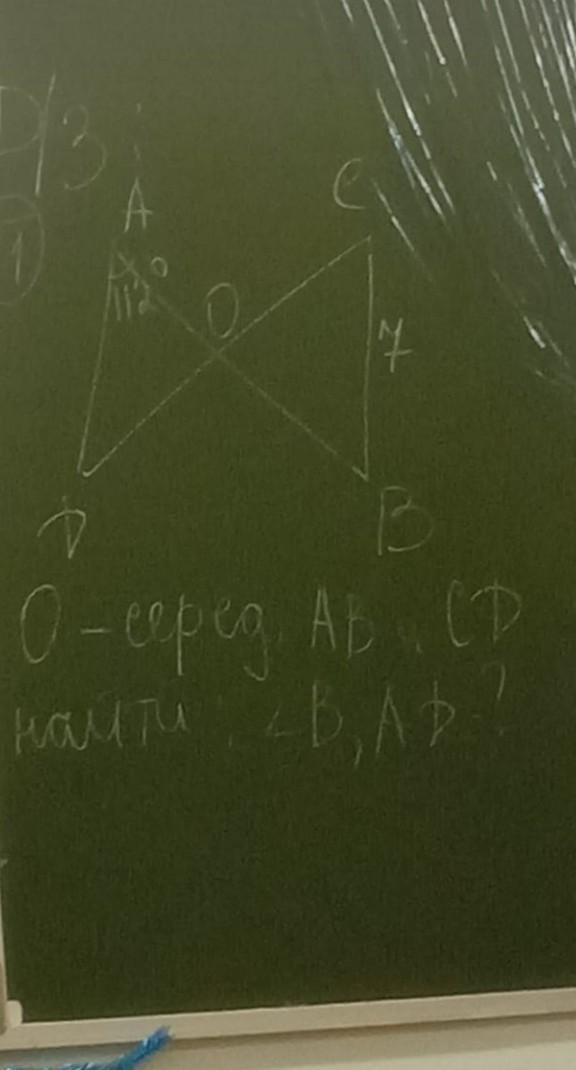 Р/З
1
A
C
112°
O
7
D
B
O - серед. AB и CD
найти: ∠B, AD-?